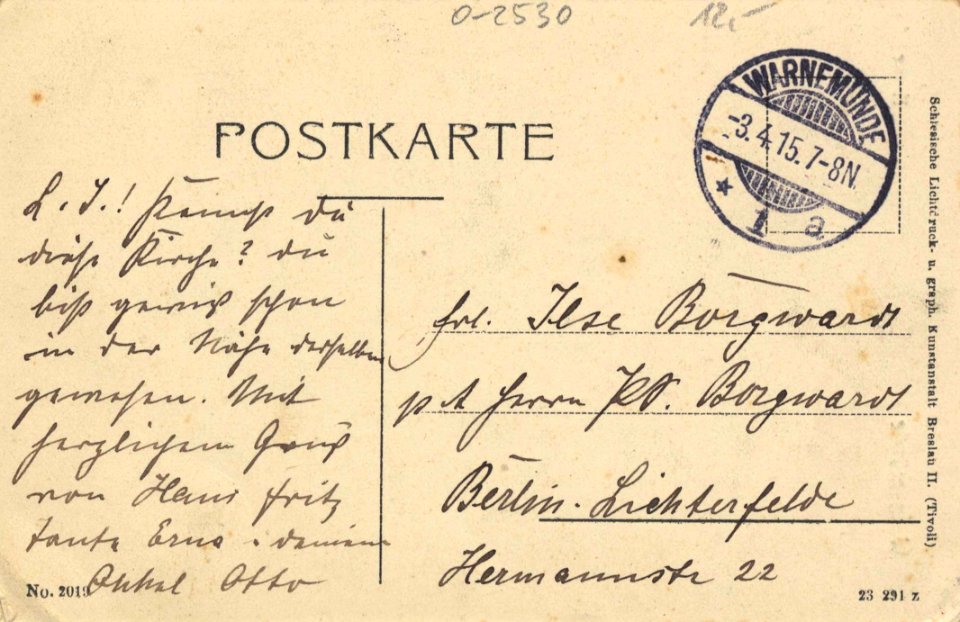 0-2530
12,-
WARNEMÜNDE
-3.4.15.7-8N.
1 a
POSTKARTE
L. I.! Kennst du
diese Kirche? du
bist gewiß schon
in der Nähe derselben
gewesen. Mit
herzlichem Gruß
von Hans Fritz
Tante Erna. deinem
Onkel Otto
Frl. Ilse Borgwardt
p A Herrn Borgwardt
Berlin-Lichterfelde
Hermannstr 22
No. 2019
23 291 z
Schlesische Lichtdruck- u. graph. Kunstanstalt Breslau II. (Tivoli)